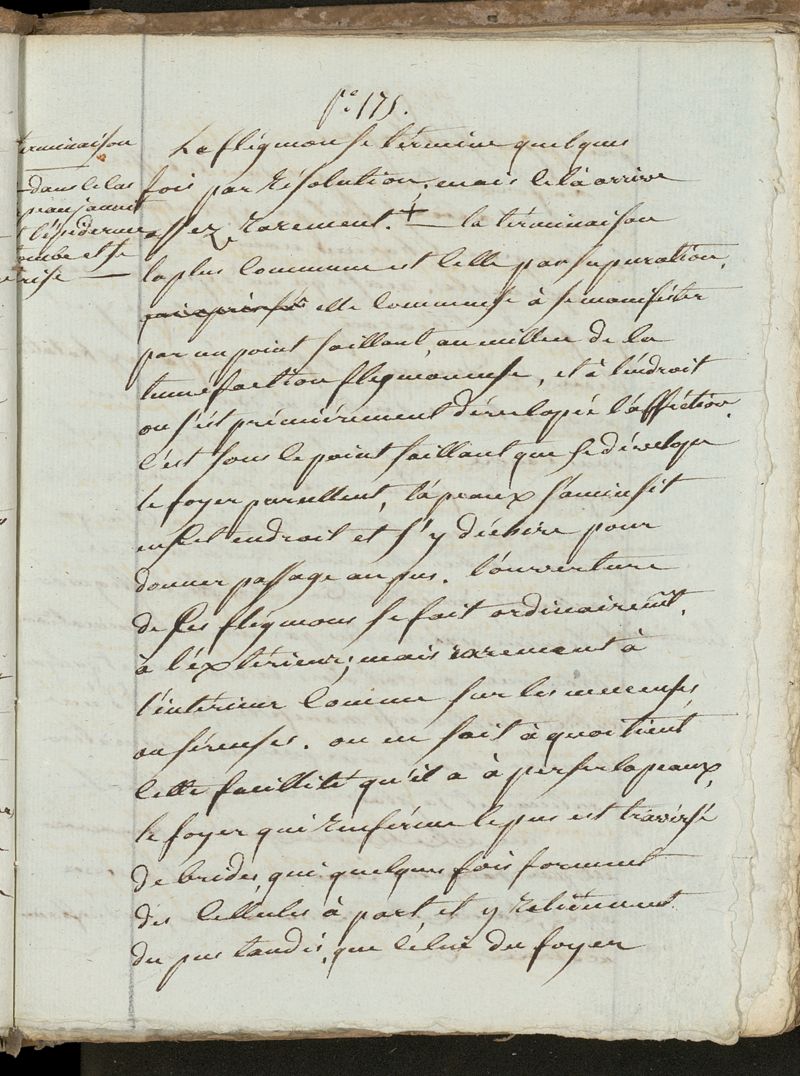 fo. 175.
terminaison
dans le cas
peau jaunit
l'épiderme
tombe et se
Le flégmon se términe quelques
fois par résolution, mais celà arrive
assez rarement. + — la términaison
la plus commune est celle par supuration,
elle commense à se manifester
par un point saillant, au milieu de la
tumefaction flegmoneuse, et à l'endroit
ou s'est prémiérement dévelopée l'afféction.
c'est sous le point saillant que se dévelope
le foyer purullent, la peaux s'amincit
en cet endroit et s'y déchire pour
donner passage au pus. l'ouverture
de ces flégmons se fait ordinairemt.
à l'éxtérieur; mais rarement à
l'intérieur comme sur les muceuses
ou séreuses. on en sait à quoi tient
cette facillité qu'il a à perser la peaux,
le foyer qui renférme le pus est travérsé
de brides, qui quelques fois forment
des cellules à part, et y retiennent
du pus tandis, que célui du foyer